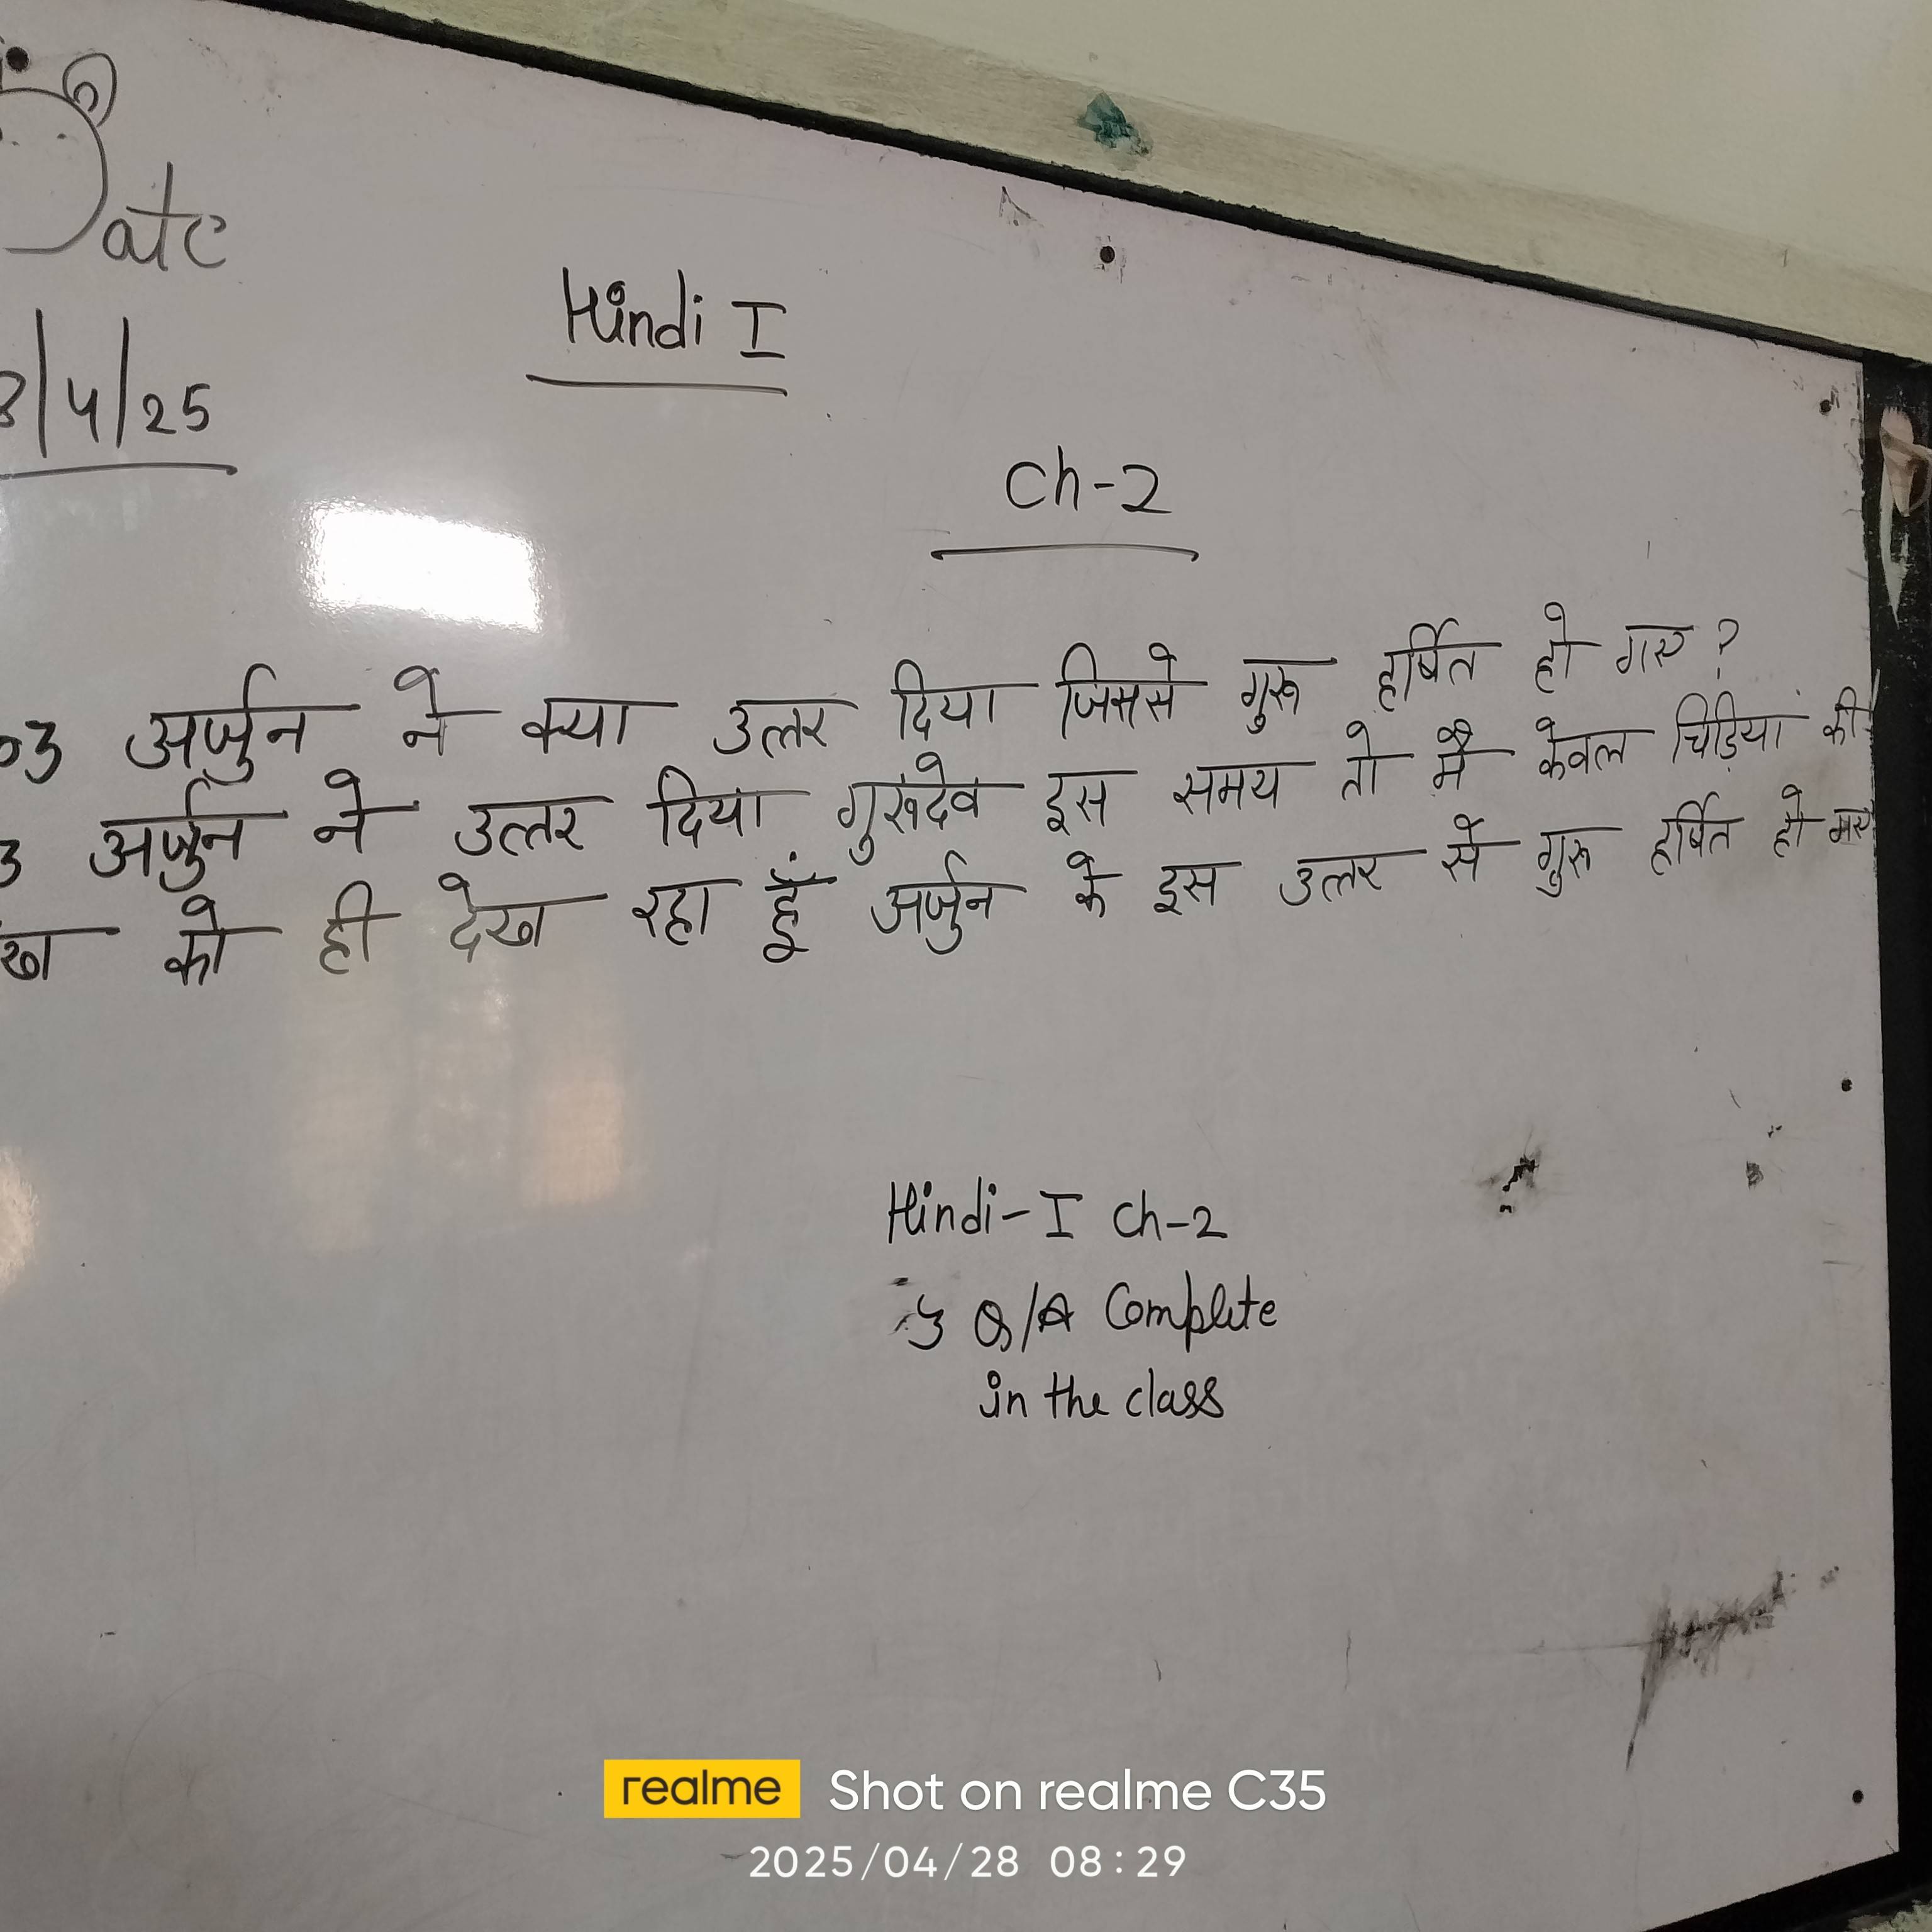 Date
8/4/25
Hindi I
Ch-2
03 अर्जुन ने क्या उत्तर दिया जिससे गुरू हर्षित हो गए ?
3 अर्जुन ने उत्तर दिया गुरूदेव इस समय तो मैं केवल चिड़ियां की
को ही देख रहा हूँ अर्जुन के इस उत्तर से गुरू हर्षित हो गए
Hindi-I Ch-2
Q/A Complete
in the class
realme Shot on realme C35
2025/04/28 08:29